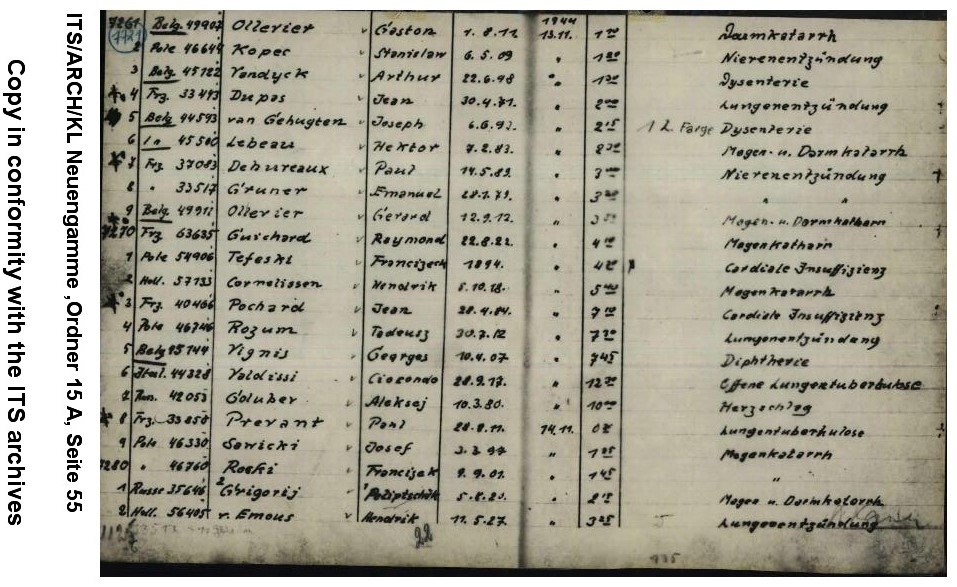 ITS/ARCH/KL Neuengamme ,Ordner 15 A, Seite 55
Copy in conformity with the ITS archives
1944
7261 Belg. 49902 Ollevier v Gaston 1.8.11. 13.11. 1 Darmkatarrh
7721
2 Pole 46644 Kopec v Stanislaw 6.5.09 " Nierenentzündung
3 Belg 45722 Vandyck v Arthur 22.6.98 " Dysenterie
4 Frz. 33493 Dupas v Jean 30.4.71. " 2⁰⁰ Lungenentzündung
5 Belg 44593 van Gehugten v Joseph " 2¹⁵ Farge Dysenterie
6 45500 Lebeau v Hektor 7.2.83. " Magen- u. Darmkatarrh
7 Frz 37083 Dehureaux v Paul 14.5.89. " 3⁰⁰ Nierenentzündung
8 " 33517 Gruner v Emanuel " " "
9 Belg. 49911 Ollevier v Gerard 12.9.12. " Magen- u. Darmkatharr
7270 Frz 63635 Guichard v Raymond 22.8.22. " 4⁰⁰ Magenkatharr
1 Pole 54906 Tefeski v Francizech 1894. " Cardiale Insuffizienz
2 Holl. 57133 Cornelissen v Hendrik 5.10.18. " Magenkatarrh
3 Frz. 40466 Pochard v Jean 28.4.84. " 7¹⁰ Cardiale Insuffizienz
4 Pole 46746 Rozum v Tadeusz 30.7.12 " Lungenentzündung
5 Belg Vignis v Georges 10.4.07. " 7⁴⁵ Diphtherie
6 Ital. 44328 Valdissi v Ciocondo 28.9.17. " 12 Offene Lungentuberkulose
7 Russ. 42053 Goluber v Aleksej 10.3.80. " 10⁰⁰ Herzschlag
8 Frz. 33858 Prevant v Paul 28.8.11. 14.11. Lungentuberkulose
9 Pole 46330 Sawicki v Josef " Magenkatarrh
7280 " 46760 Roski v Francizek 9.9.01. " 1⁴⁵ "
1 Russe 35646 Grigorij Poliptschik 5.8.20. " 2¹⁵ Magen u. Darmkatarrh
2 Holl. 56405 v. Emous v Hendrik 11.5.27. " 3²⁵ Lungenentzündung
22